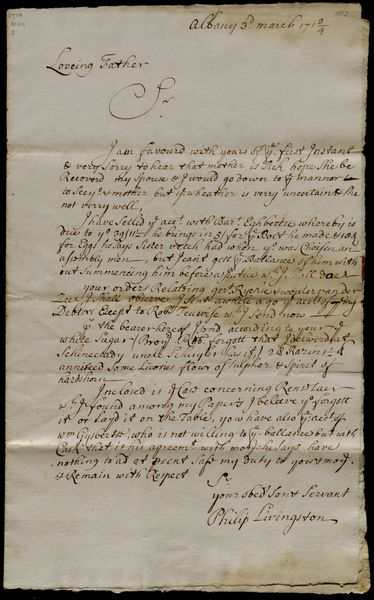 Albany 3d march 171 3/4
Loveing Father
Sr
I am favourd with yours of ye. first Instant
& very Sorry to hear that mother is Sick hope She be
Recoverd my Spouse & I would go down to ye mannor
to See yo. & mother but ye wheather is very uncertain & She
not very well
I have Setled ye acct. with Bar: Egbertse whereby is
due to yo. he brings in for he made
for Eggs he Says Sister vetch had when yo. was Choisen an
assembly men, but I cant gett ye Ballance of him with
out Summoncing him before a Justice wch. I Shall doe
your orders Relating gert Ryerse & wouter van der
Zee I Shall observe I Sent a while a go ye accts of my
Debtors Except to Robt. Teuwise wch. I Send now
P. ye. the bearer hereof I Send according to your
white Sugar I forgott that I delivered at
Schinechtady uncle Schuyler has
annised Some Licoras flour of Sulphar & Spirit of
harthorn
Inclosed is ye Case concerning Renslaer
wch. I found among my Papers I believe yo. forgott
it or layd it on the Table, you have also ye acct. of
wm Gysbertse, who is not willing to ye. ballance but with
Cask that is his agreemt. with mory he Says have
nothing to ad at present Save my duty to you & mor.
& Remain with Respect
Sr
your obedt. Son & Servant
Philip Livingston